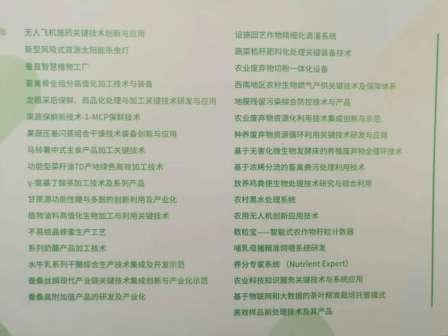 无人飞机施药关键技术创新与应用
新型风吸式双源太阳能杀虫灯
垂直智慧植物工厂
畜禽骨全组分高值化加工技术与装备
龙眼采后保鲜、商品化处理与加工关键技术研发与应用
果蔬保鲜新技术-1-MCP保鲜技术
果蔬压差闪蒸组合干燥技术装备创新与应用
马铃薯中式主食产品加工关键技术
功能型菜籽油7D产地绿色高效加工技术
γ-氨基丁酸茶加工技术及系列产品
甘蔗源功能性糖与多酚的创新利用及产业化
植物油料高值化生物加工与利用关键技术
不易结晶蜂蜜生产工艺
系列奶酪产品加工技术
水牛乳系列干酪综合生产技术集成及开发示范
蚕桑丝绸现代产业链关键技术集成创新与产业化示范
蚕桑高附加值产品的研发及产业化
设施园艺作物精细化灌溉系统
蔬菜秸秆肥料化处理关键装备技术
农业废弃物切粉一体化设备
西南地区农村生物燃气产供关键技术及保障体系
地膜残留污染综合防控技术与产品
农业废弃物资源化利用技术集成创新与示范
种养废弃物资源循环利用关键技术研发与应用
基于无害化微生物发酵床的养殖废弃物全循环技术
基于浓稀分流的畜禽粪污处理利用技术
放养鸡粪便生物处理技术研究与综合利用
农村黑水处理系统
农用无人机创新应用技术
数粒宝——智能式农作物籽粒计数器
哺乳母猪精准饲喂系统研发
养分专家系统 （Nutrient Expert）
农业科技知识服务关键技术与系统应用
基于物联网和大数据的茶叶精准栽培托管模式
高效样品前处理技术及其产品